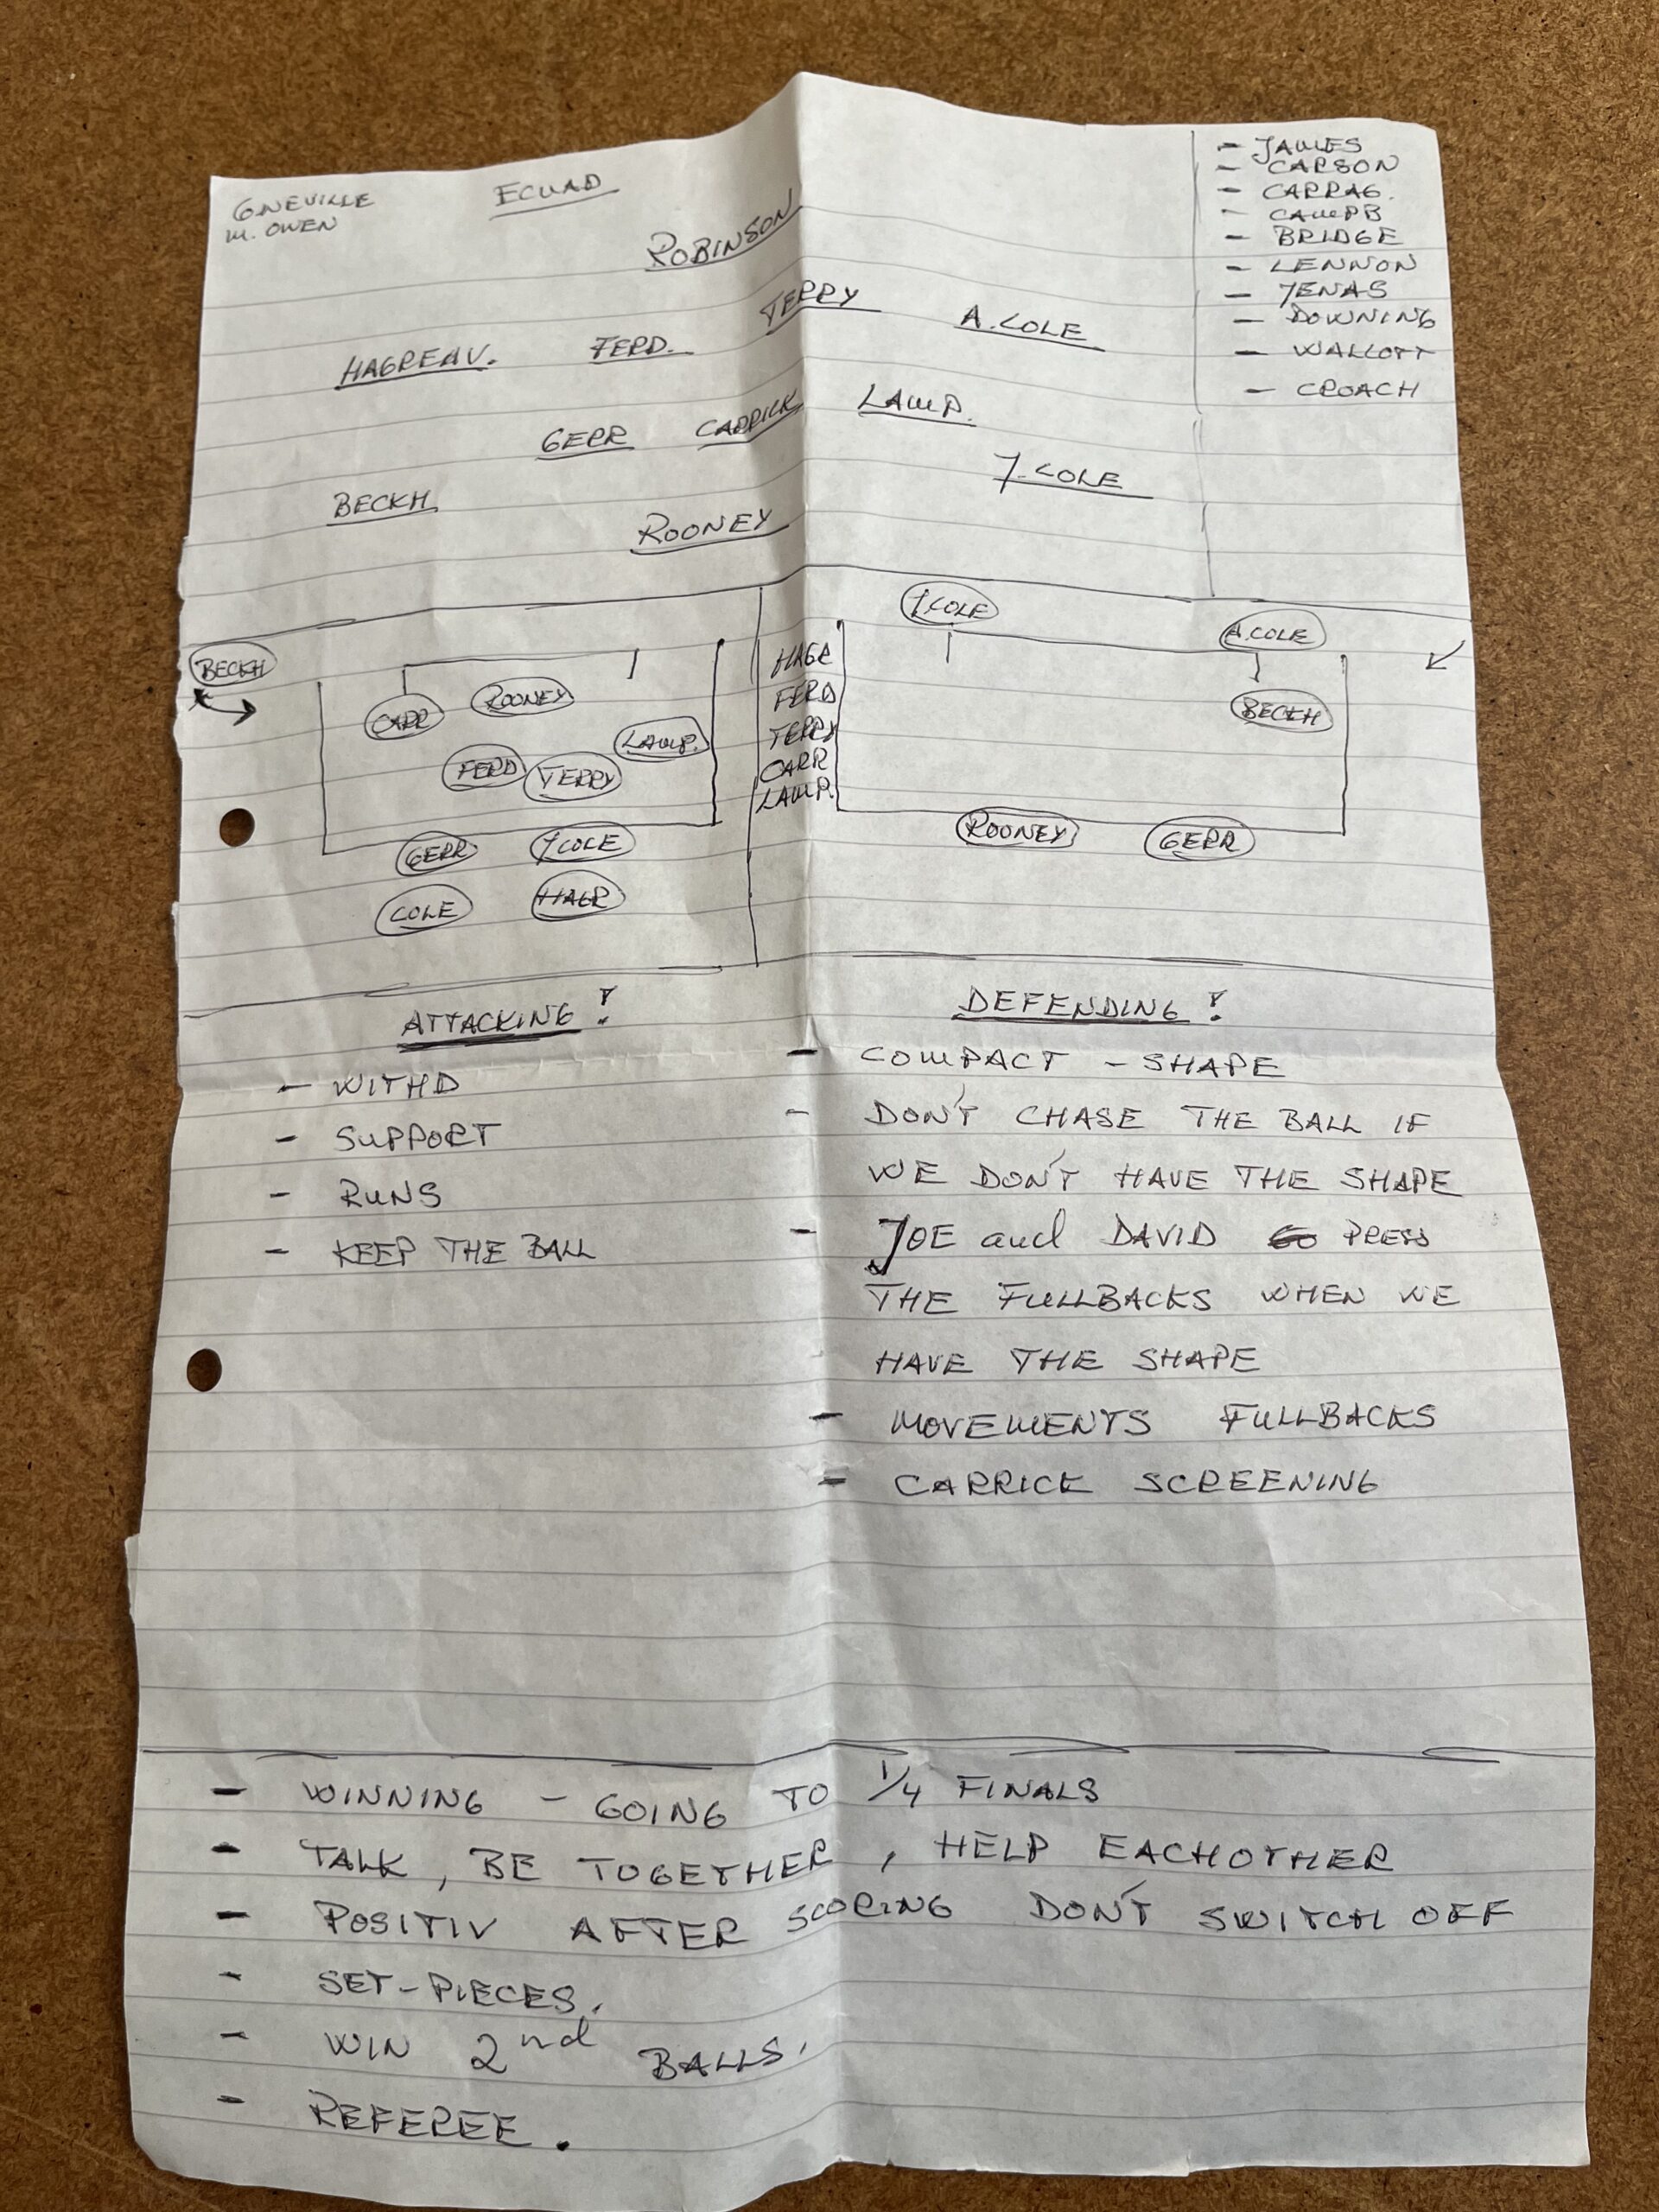 GNEVILLE
M. OWEN
ECUAD
- JAMES
- CARSON
- CARRAG.
- CAMPB
- BRIDGE
- LENNON
- JENAS
- DOWNING
- WALLOTT
- CROACH
ROBINSON
HAGREAV. FERD. TERRY A.COLE
GERR CARRICK LAMP.
BECKH J.COLE
ROONEY
BECKH
CARR ROONEY
LAMP.
FERD TERRY
GERR J COLE
COLE HAGR
HAGR
FERD
TERRY
CARR
LAMP.
J COLE
A.COLE
BECKH
ROONEY GERR
ATTACKING!
- WITHD
- SUPPORT
- RUNS
- KEEP THE BALL
DEFENDING!
- COMPACT - SHAPE
- DON'T CHASE THE BALL IF
WE DON'T HAVE THE SHAPE
- JOE and DAVID PRESS
THE FULLBACKS WHEN WE
HAVE THE SHAPE
- MOVEMENTS FULLBACKS
- CARRICK SCREENING
- WINNING - GOING TO 1/4 FINALS
- TALK, BE TOGETHER, HELP EACHOTHER
- POSITIV AFTER SCORING DON'T SWITCH OFF
- SET-PIECES.
- WIN 2nd BALLS.
- REFEREE.